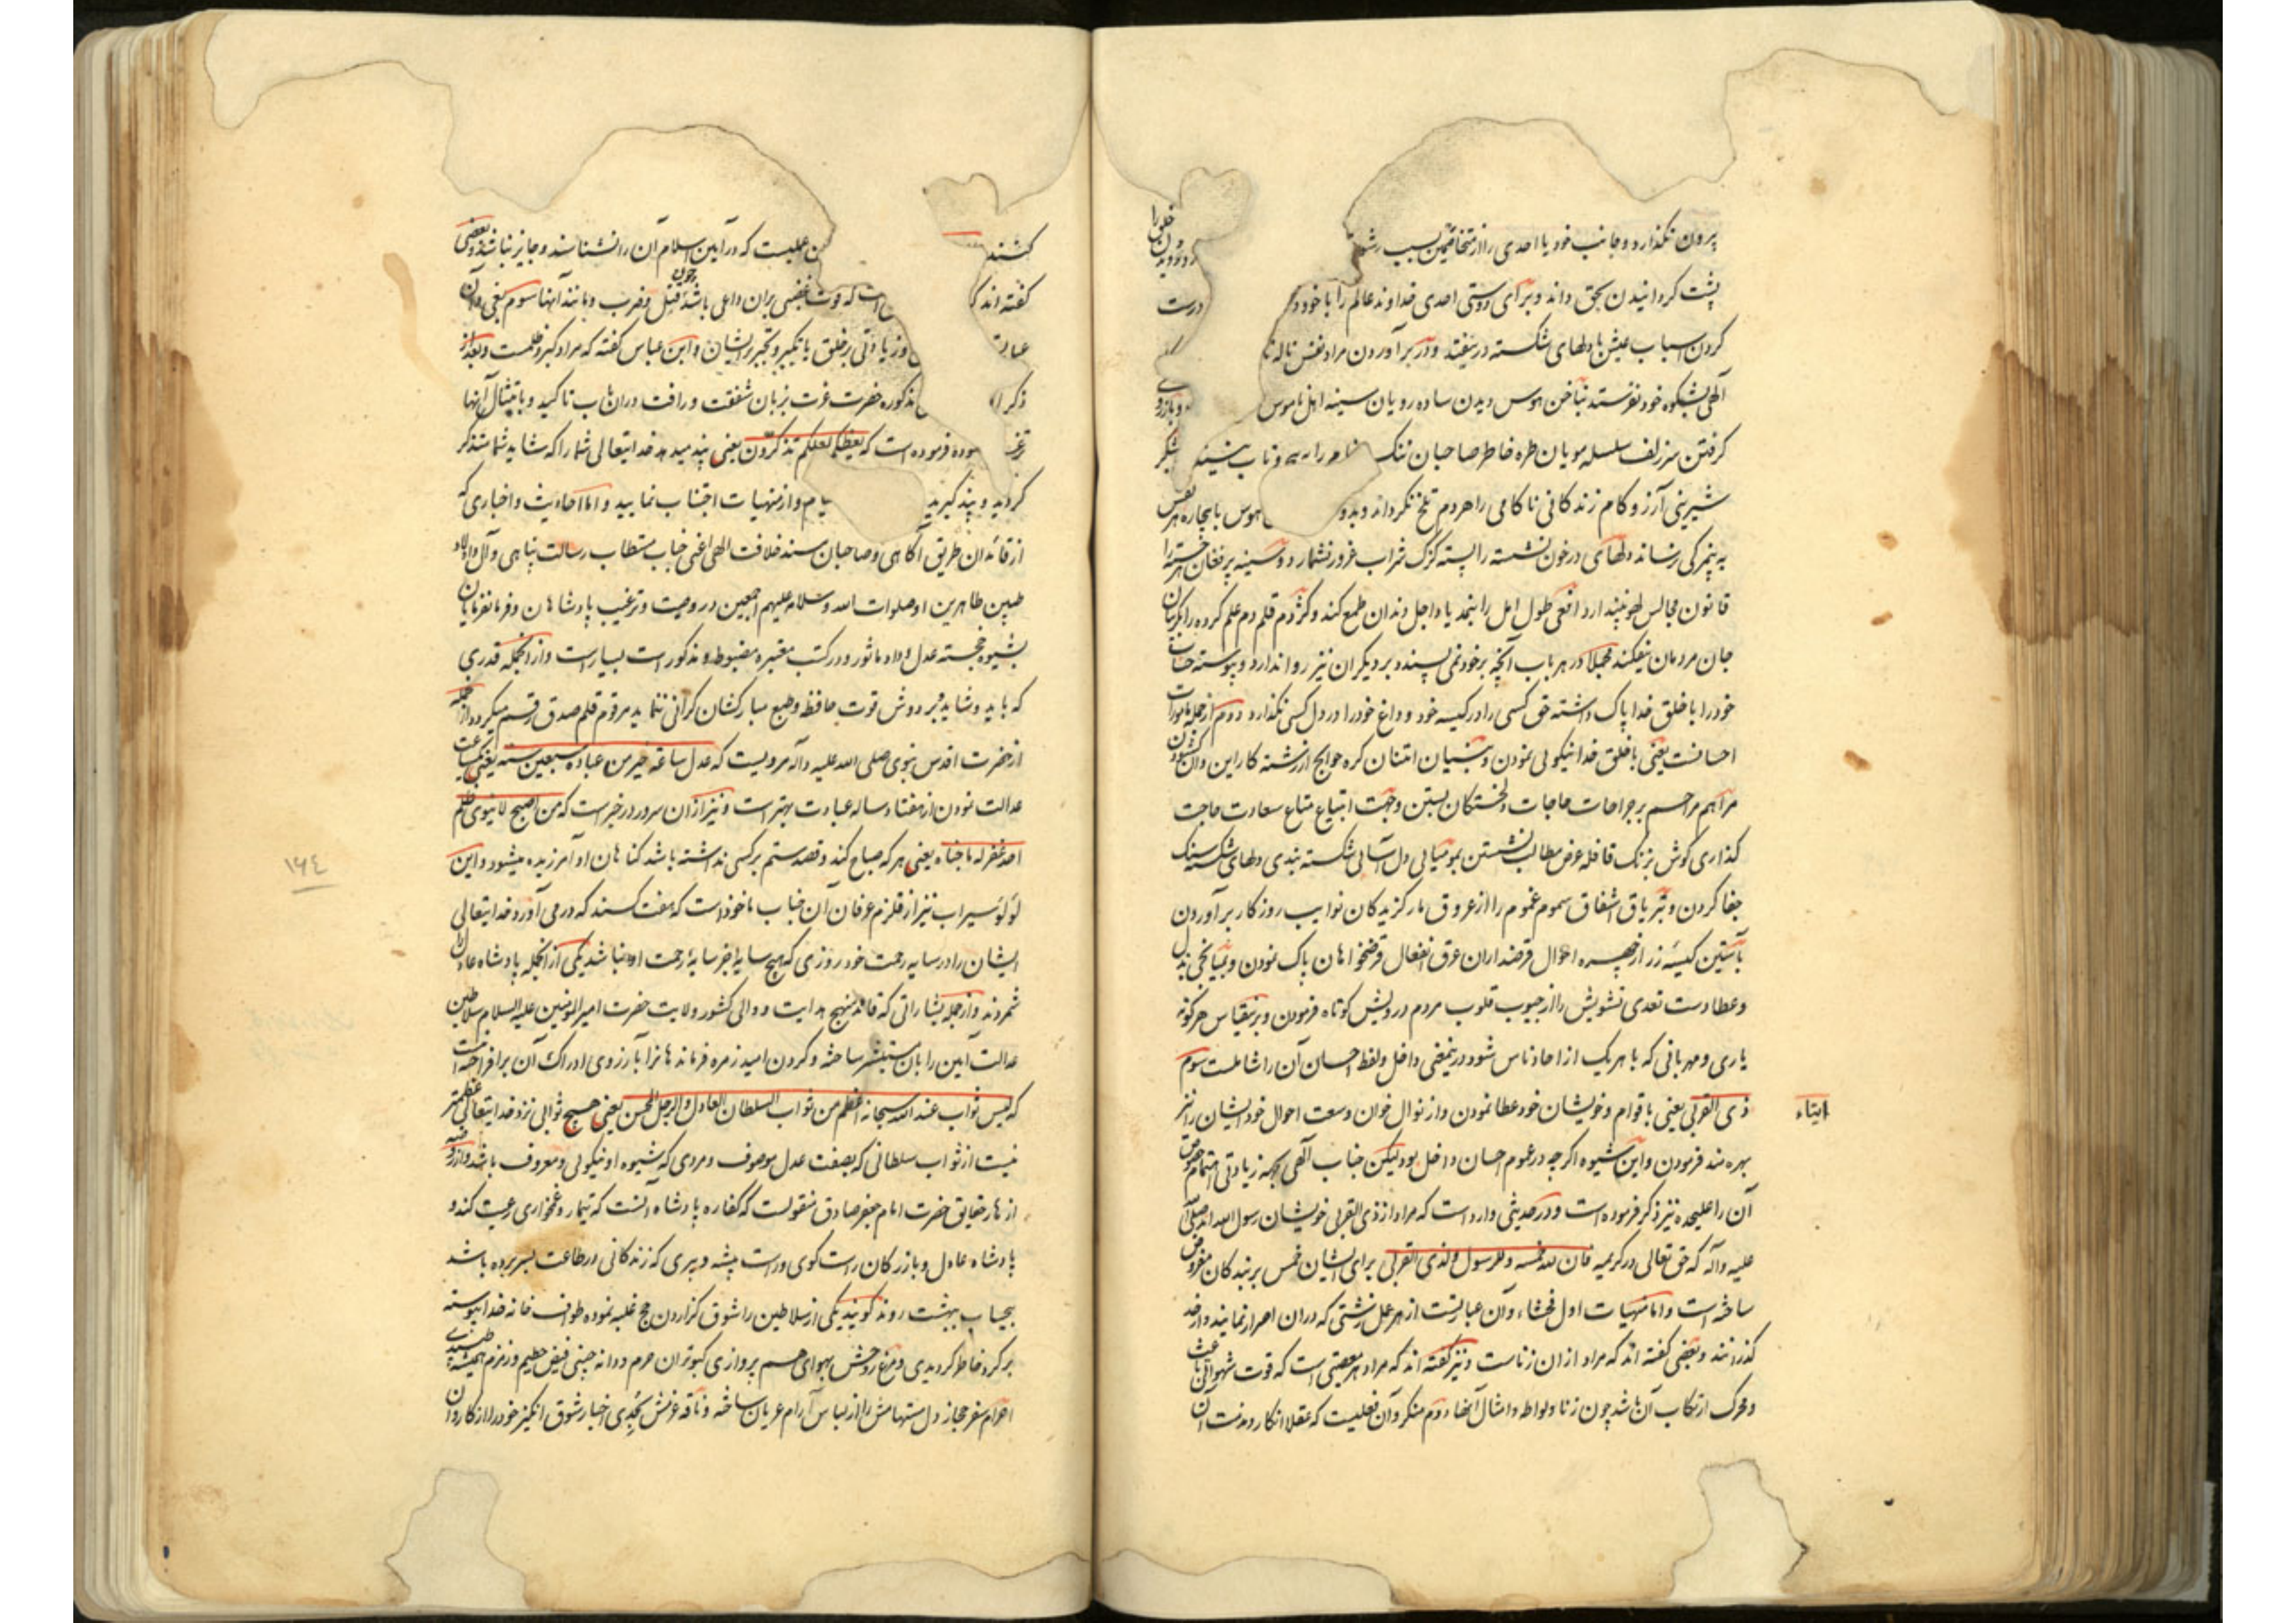 بیرون نگذارد و جانب خود یا احدی را از متخاصمین بسبب
پشت گردانیدن بحق داند و برای دوستی احدی خداوند عالم را با خود درست
کردن اسباب عیش با دلهای شکسته در نیفتد و در بر آوردن مراد نفس ناله
آلهی بشکوه خود نفرستد بناخن هوس دیدن ساده رویان سینه اهل ناموس
گرفتن سر زلف سلسله مویان طره خاطر صاحبان ننک
شیرینی آرزو کام زندکانی ناکامی را هر دم تلخ نگرداند هوس بیچاره هر نفس
به پنجرگی نرساند دلهای در خون نشسته را پسته گزک شراب غرور نشمارد و سینه پر فغان هر خسته را
قانون مجالس لهو نپندارد افعی طول امل را بنجد یاد اجل دندان طمع کند و کژدم قلم دم علم کرده را بکریبان
جان مردمان نیفکند مجملا در هر باب آنچه بر خود نمی پسندد بر دیگران نیز روا ندارد و پیوسته حساب
خود را با خلق خدا پاک داشته حق کسی را در کیسه خود و داغ خود را در دل کسی نگذارد دوم از جمله مامورات
احسانست یعنی با خلق خدا نیکوئی نمودن و بی امتنان کره حوایج از رشته کار این و آن گشودن
مراهم مراحم بر جراحات حاجات دلخستگان بستن و جهت ابتیاع متاع سعادت حاجت
گذاری گوش بزنک قافله عرض مطالب نشستن بمومیائی دل آسائی شکسته بندی دلهای شکسته سنک
جفا کردن و بتریاق اشفاق سموم غموم را از عروق مار گزیدکان نوایب روزکار برآوردن
بآستین کیسه زر از چهره احوال قرضداران عرق انفعال قرضخواهان پاک نمودن و بمیانجی بذل
و عطا دست تعدی تشویش را از جیوب قلوب مردم درویش کوتاه فرمودن و بر نقیاس هر گونه
یاری و مهربانی که با هر یک از احاد ناس شود در نمعنی داخل و لفظ احسان آن را شاملست سوم
ایتاء
ذی القربی یعنی باقوام و خویشان خود عطا نمودن و از نوال خوان وسعت احوال خود ایشان را نیز
بهره مند فرمودن و این شیوه اگر چه در عموم احسان داخل بود لیکن جناب آلهی بجهه زیادتی اهتمام بخصوص
آن را علیحده نیز ذکر فرموده است و در حدیثی وارد است که مراد از ذی القربی خویشان رسول الله اند صلی الله
علیه وآله که حق تعالی در کریمه فان لله خمسه و للرسول ولذی القربی برای ایشان خمس بر بندکان مفروض
ساخته است و اما منهیات اول فحشاء وآن عبارتست از هر عمل زشتی که دران اصرار نمایند و از حد
گذرانند و بعضی گفته اند که مراد ازان زناست و نیز گفته اند که مراد هر معصیتی است که قوت شهوانی باعث
و محرک ارتکاب آن باشد چون زنا و لواطه و امثال آنها دوم منکر و آن فعلیست که عقلا انکار و مذمت آن
کنند عملیست که در آیین اسلام آن را نشناسند و جایز نباشد و بعضی
گفته اند که است که قوت غضبی بران داعی باشد چون قتل و ضرب و مانند آنها سوم بغی و آن
عبارت و زیادتی بر خلق یا تکبر و تجبر بر ایشان و ابن عباس گفته که مراد کبر و ظلمست و بعد از
ذکر مذکوره حضرت عزت بزبان شفقت و رافت دران باب تاکید و بامتثال آنها
فرموده است که یعظکم لعلکم تذکرون یعنی پند میدهد خدایتعالی شما را که شاید شما متذکر
گردید و پند گیرید و از منهیات اجتناب نمایید و اما احادیث و اخباری که
از قائدان طریق آگاهی و صاحبان مسند خلافت الهی اعنی جناب مستطاب رسالت پناهی و آل و اولاد
طیبین طاهرین او صلوات الله وسلامه علیهم اجمعین در وصیت و ترغیب پادشاهان و فرمانفرمایان
بشیوه خجسته عدل و داد ماثور و در کتب معتبره مضبوط و مذکور است بسیار است و از انجمله قدری
که باید و شاید و بر دوش قوت حافظه و طبع مبارکشان گرانی ننماید مرقوم قلم صدق رقم میگردد از جمله
از حضرت اقدس نبوی صلی الله علیه وآله مرویست که عدل ساعة خیر من عبادة سبعین سنه یعنی یک ساعت
عدالت نمودن از هفتاد ساله عبادت بهتر است و نیز ازان سرور در خبر است که من اصبح لا ینوی ظلم
احد غفر له ما جناه یعنی هر که صباح کند و قصد ستم بر کسی نداشته باشد گناهان او آمرزیده میشود و این
لؤلؤ سیراب نیز از قلزم عرفان آن جناب ماخوذ است که هفت کسند که در می آورد خدایتعالی
ایشان را در سایه رحمت خود روزی که هیچ سایه بجز سایه رحمت او نباشد یکی از انجمله پادشاه عادل را
شمردند و از جمله بشاراتی که قائد منهج هدایت و والی کشور ولایت حضرت امیر المؤمنین علیه السلام سلاطین
عدالت آیین را بان مستبشر ساخته و گردن امید زمره فرماندهانرا بآرزوی ادراک آن برافراخته است
که لیس ثواب عند الله سبحانه اعظم من ثواب السلطان العادل والرجل المحسن یعنی هیچ ثوابی نزد خدایتعالی عظیمتر
نیست از ثواب سلطانی که بصفت عدل موصوف و مردی که شیوه او نیکوئی و معروف باشد و از روضه
ازهار حقایق حضرت امام جعفر صادق منقولست که کفاره پادشاه آنست که تیمار و غمخواری رعیت کند و
پادشاه عادل و بازرکان راست گوی و راست پیشه و پیری که زندکانی در طاعت بسر برده باشد
بیحساب ببهشت روند گویند یکی از سلاطین را شوق گزاردن حج غلبه نموده طواف خانه خدا پیوسته
بر گرد خاطر گردیدی و مرغ روحش بهوای هم پروازی کبوتران حرم دو دانه چینی فیض حطیم و زمزم همیشه طپیدی
احرام سفر حجاز دل مستهامش را از لباس آرام عریان ساخته و ناقه عزمش بحدی اخبار شوق انگیز خود را از کاروان
١٦٤